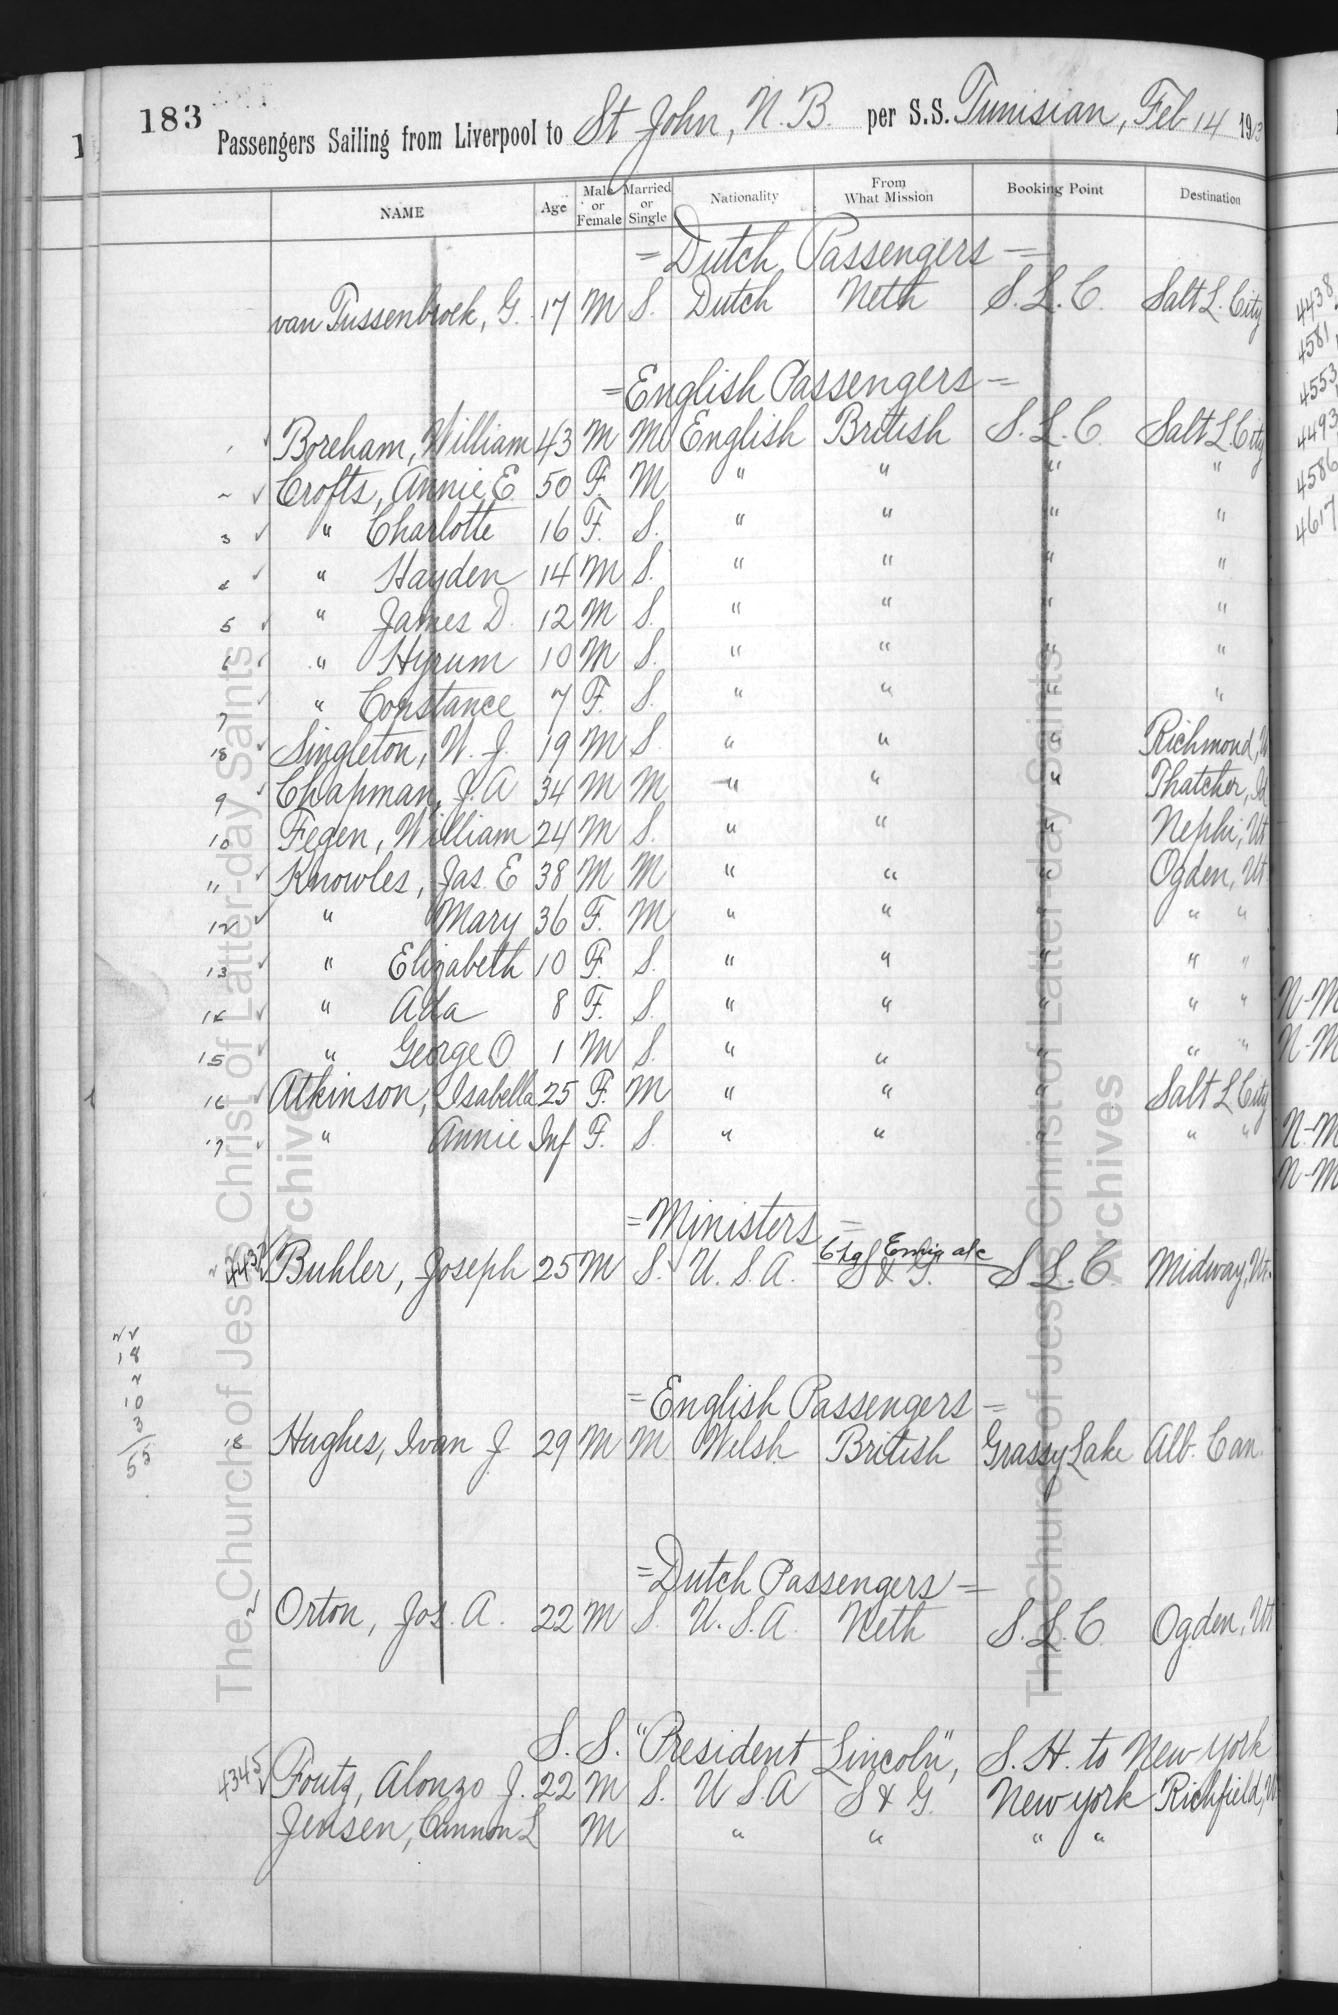 183
Passengers Sailing from Liverpool to St John, N. B. per S.S. Tunisian, Feb 14 1913
NAME Age Male or Female Married or Single Nationality From What Mission Booking Point Destination
= Dutch Passengers =
van Tussenbroek, G. 17 M S. Dutch Neth S. L. C. Salt L. City
= English Passengers =
Boreham, William 43 M M English British S. L. C. Salt L. City
Crofts, Annie E 50 F. M " " " "
3 " Charlotte 16 F. S. " " " "
4 " Hayden 14 M S. " " " "
5 " James D. 12 M S. " " " "
6 " Hyrum 10 M S. " " " "
7 " Constance 7 F. S. " " " "
18 Singleton, W. J. 19 M S. " " " Richmond, U
9 Chapman, J. A 34 M M " " " Thatcher, Id
10 Fegen, William 24 M S. " " " Nephi, Ut
11 Knowles, Jas. E 38 M M " " " Ogden, Ut
12 " Mary 36 F. M " " " " "
13 " Elizabeth 10 F. S. " " " " "
14 " Ada 8 F. S. " " " " "
15 " George O 1 M S. " " " " "
16 Atkinson, Isabella 25 F. M " " " Salt L City
17 " Annie Inf F. S. " " " " "
= Ministers =
Chg Emig a/c
4432 Buhler, Joseph 25 M S. U. S. A. S & G. S L. C. Midway, Ut.
= English Passengers =
18 Hughes, Ivan J 29 M M Welsh British Grassy Lake Alb. Can.
= Dutch Passengers =
Orton, Jos. A. 22 M S. U. S. A. Neth S. L. C Ogden, Ut
S. S. "President Lincoln", S. H. to New York
4345 Foutz, Alonzo J. 22 M S. U S. A S & G. New York Richfield, U
Jensen, Cannon L M " " " "
18
10
3
55
4438
4581
4553
4493
4586
4617
N-M
N-M
N-M
N-M
The Church of Jesus Christ of Latter-day Saints
Archives
The Church of Jesus Christ of Latter-day Saints
Archives